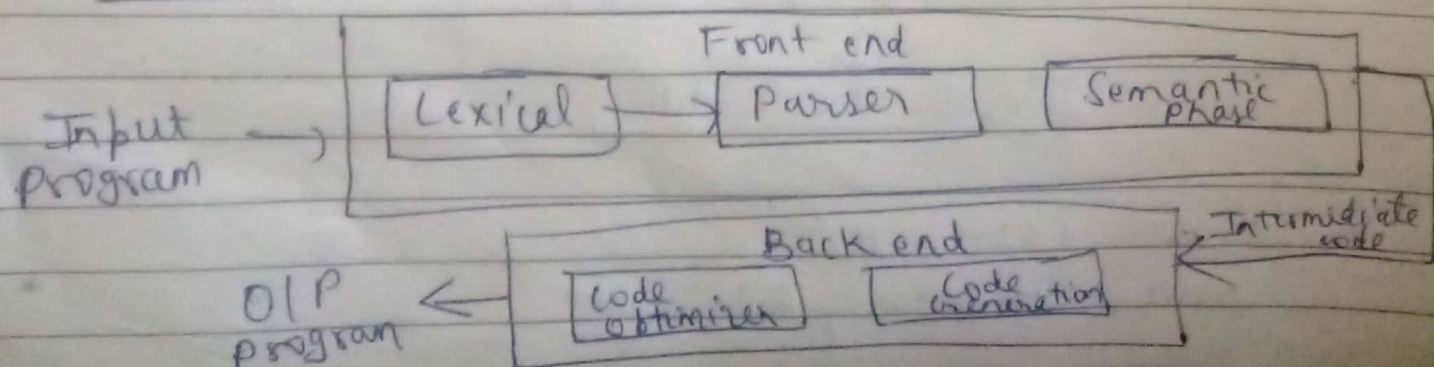 Front end
Input
program
Lexical
Parser
Semantic
phase
Intermediate
code
Back end
Code
optimizer
Code
Generation
O/P
program